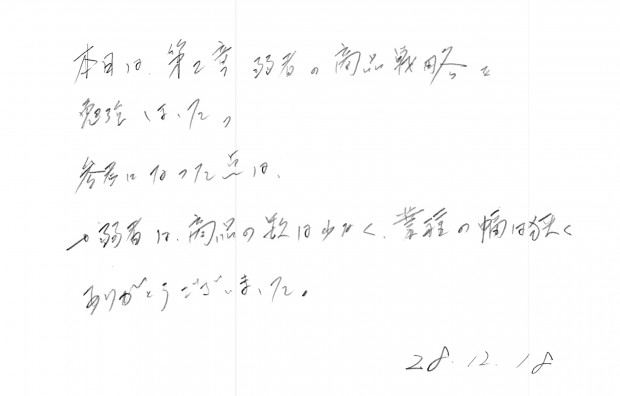 本日は、第2章 弱者の商品戦略を
勉強しました。
参考になった点は、
→弱者は、商品の数は少なく、業種の幅は狭く
ありがとうございました。
28.12.18